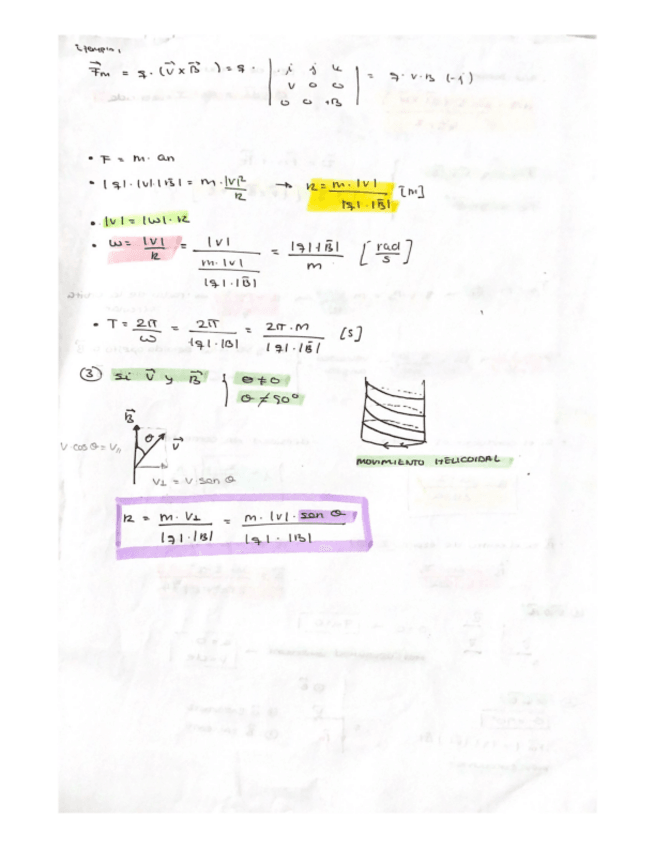 Ejemplo:
F⃗m = q · (V⃗ x B⃗) = q · | i j k | = q · V · B (-j)
V 0 0
0 0 +B
• F = m · an
• |q| · |V| · |B⃗| = m · |V|²/R → R = m · |V| / |q| · |B⃗| [m]
• |V| = |ω| · R
• ω = |V|/R = |V| / (m · |V| / |q| · |B⃗|) = |q| · |B⃗| / m [rad/s]
• T = 2π/ω = 2π / |q| · |B| = 2π · m / |q| · |B⃗| [s]
③ si V⃗ y B⃗ θ ≠ 0
θ ≠ 90°
B⃗
θ V⃗
V cos θ = V∥
V⊥ = V sen θ
MOVIMIENTO HELICOIDAL
R = m · V⊥ / |q| · |B| = m · |V| · sen θ / |q| · |B|